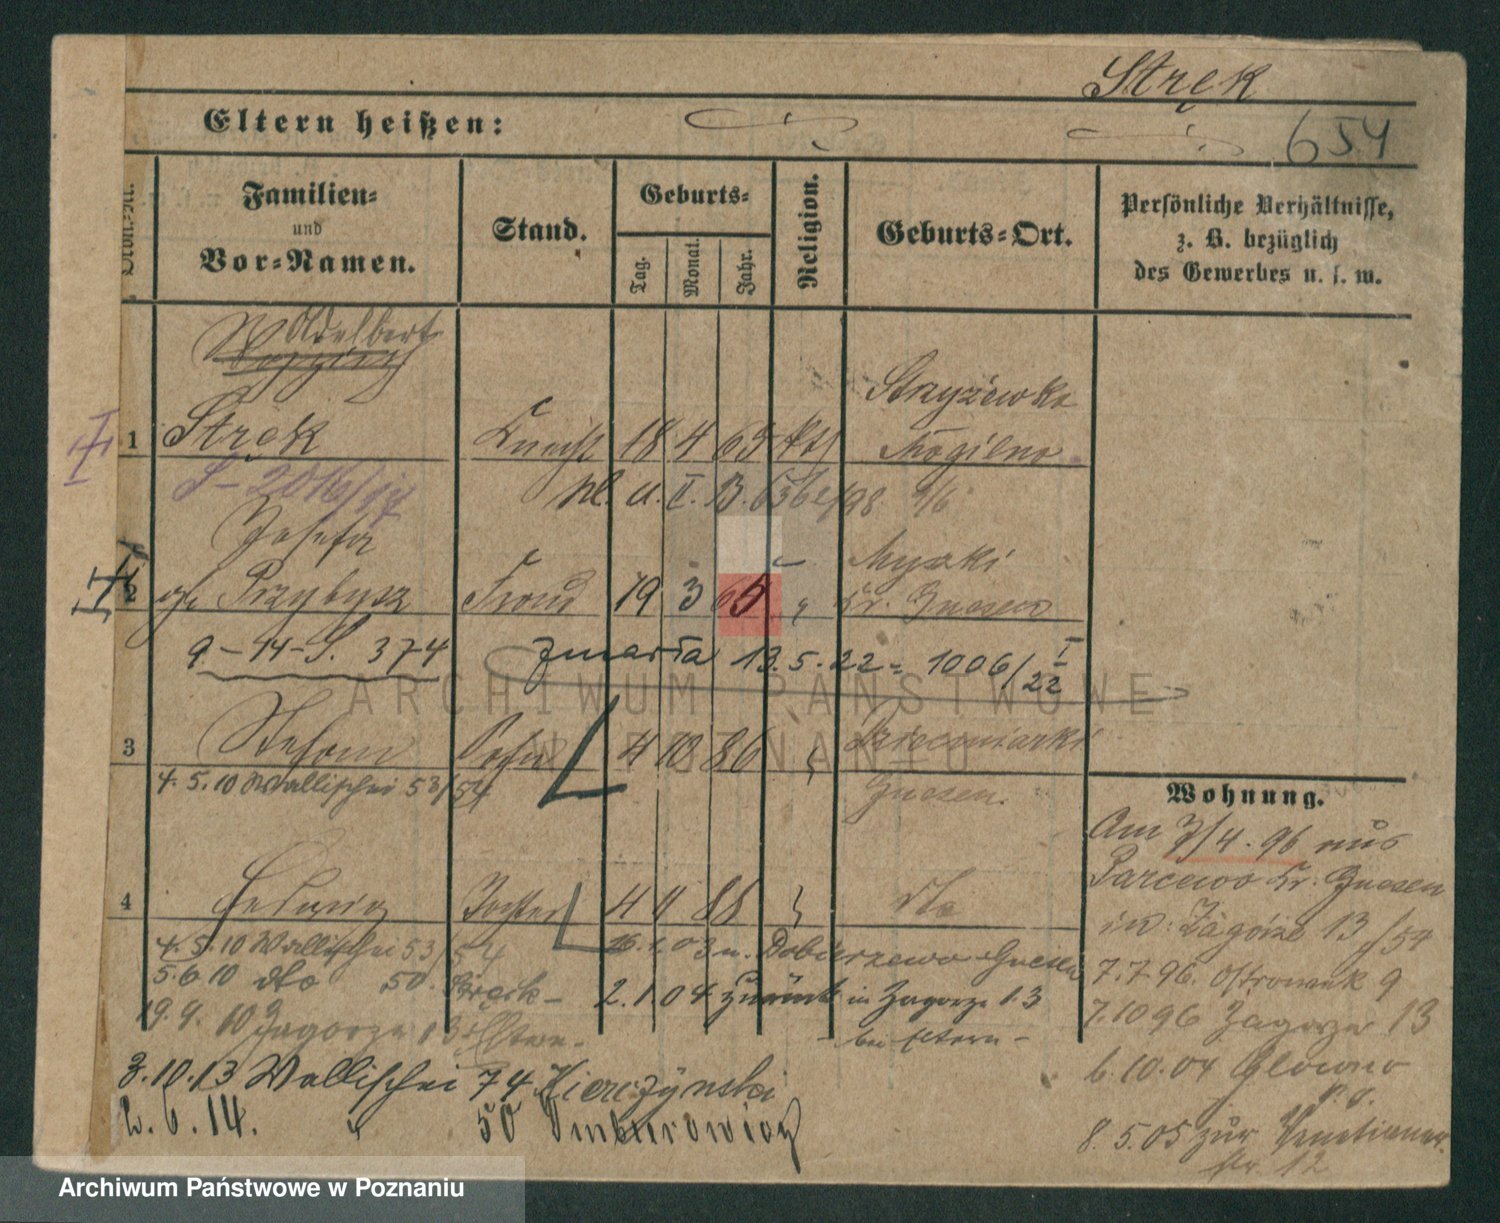 Stręk
Eltern heißen:
654
Ordn.-Nr.
Familien-
und
Vor-Namen.
Stand.
Geburts-
Tag.
Monat.
Jahr.
Religion.
Geburts-Ort.
Persönliche Verhältnisse,
z. B. bezüglich
des Gewerbes u. s. w.
Adalbert
Stryżewko
1 Stręk Knecht 18 4 65 kth Mogilno
Josefa
2 Przybysz Frau 19 3 65 Kr. Gnesen
9-11-S. 374 zmarła 13.5.22 = 1006/I 22
3 Stefan Sohn 4 10 86
4.5.10 Wallischei 53/54 Gnesen.
4 Hedwig Tochter 4 11 88 dto
4.5.10 Wallischei 53/54 26.1.03 n. Dobierzewo Gnesen
5.6.10 dto 50. 2.1.04 zurück in Zagorze 13
19.9.10 Zagorze 13 Eltern. - bei Eltern -
3.10.13 Wallischei 74
2.6.14. " 50
Wohnung.
Am 7/4.96 aus
Parcewo Kr. Gnesen
in: Zagórze 13/54
7.7.96. Ostrowek 9
7.10 96 Zagorze 13
6.10.04 Glowno
8.5.05 zur Venetianer
str. 12
ARCHIWUM PAŃSTWOWE
W POZNANIU
Archiwum Państwowe w Poznaniu